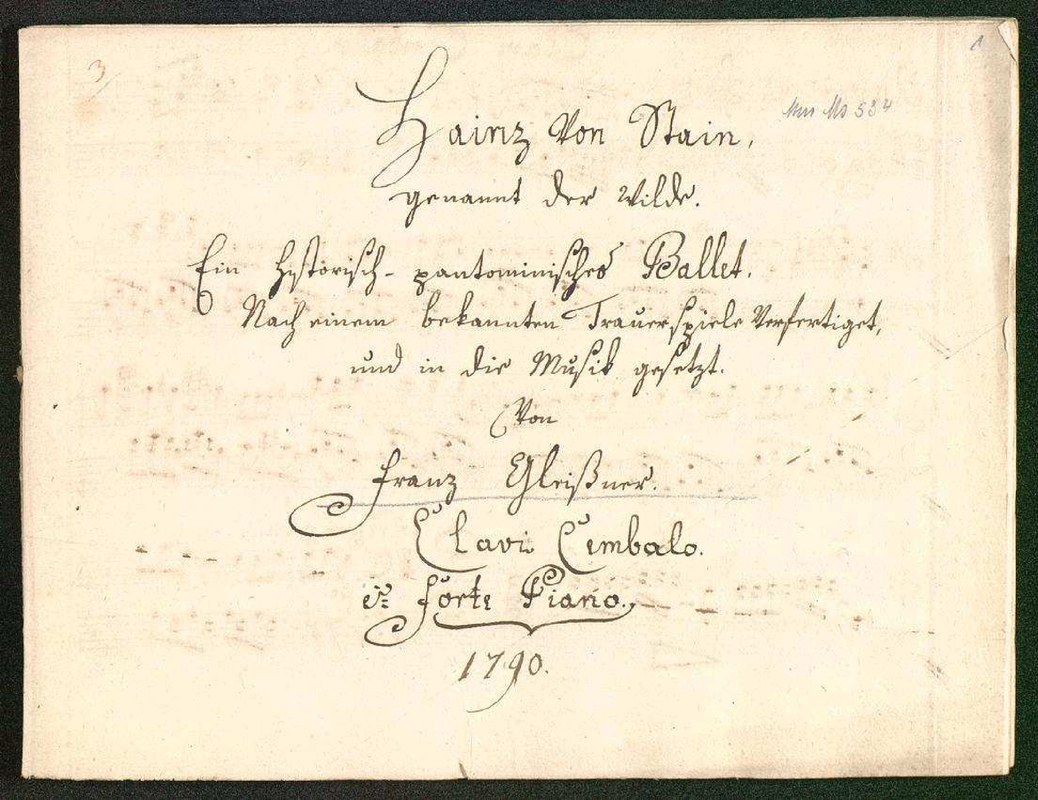 3
1
Mus Ms 534
Hainz von Stain,
genannt der Wilde.
Ein Historisch-pantominisches Ballet.
Nach einem bekannten Trauerspiele Verfertiget,
und in die Musik gesetzt.
Von
Franz Gleißner.
Clavi Cembalo.
Forte Piano.
1790.